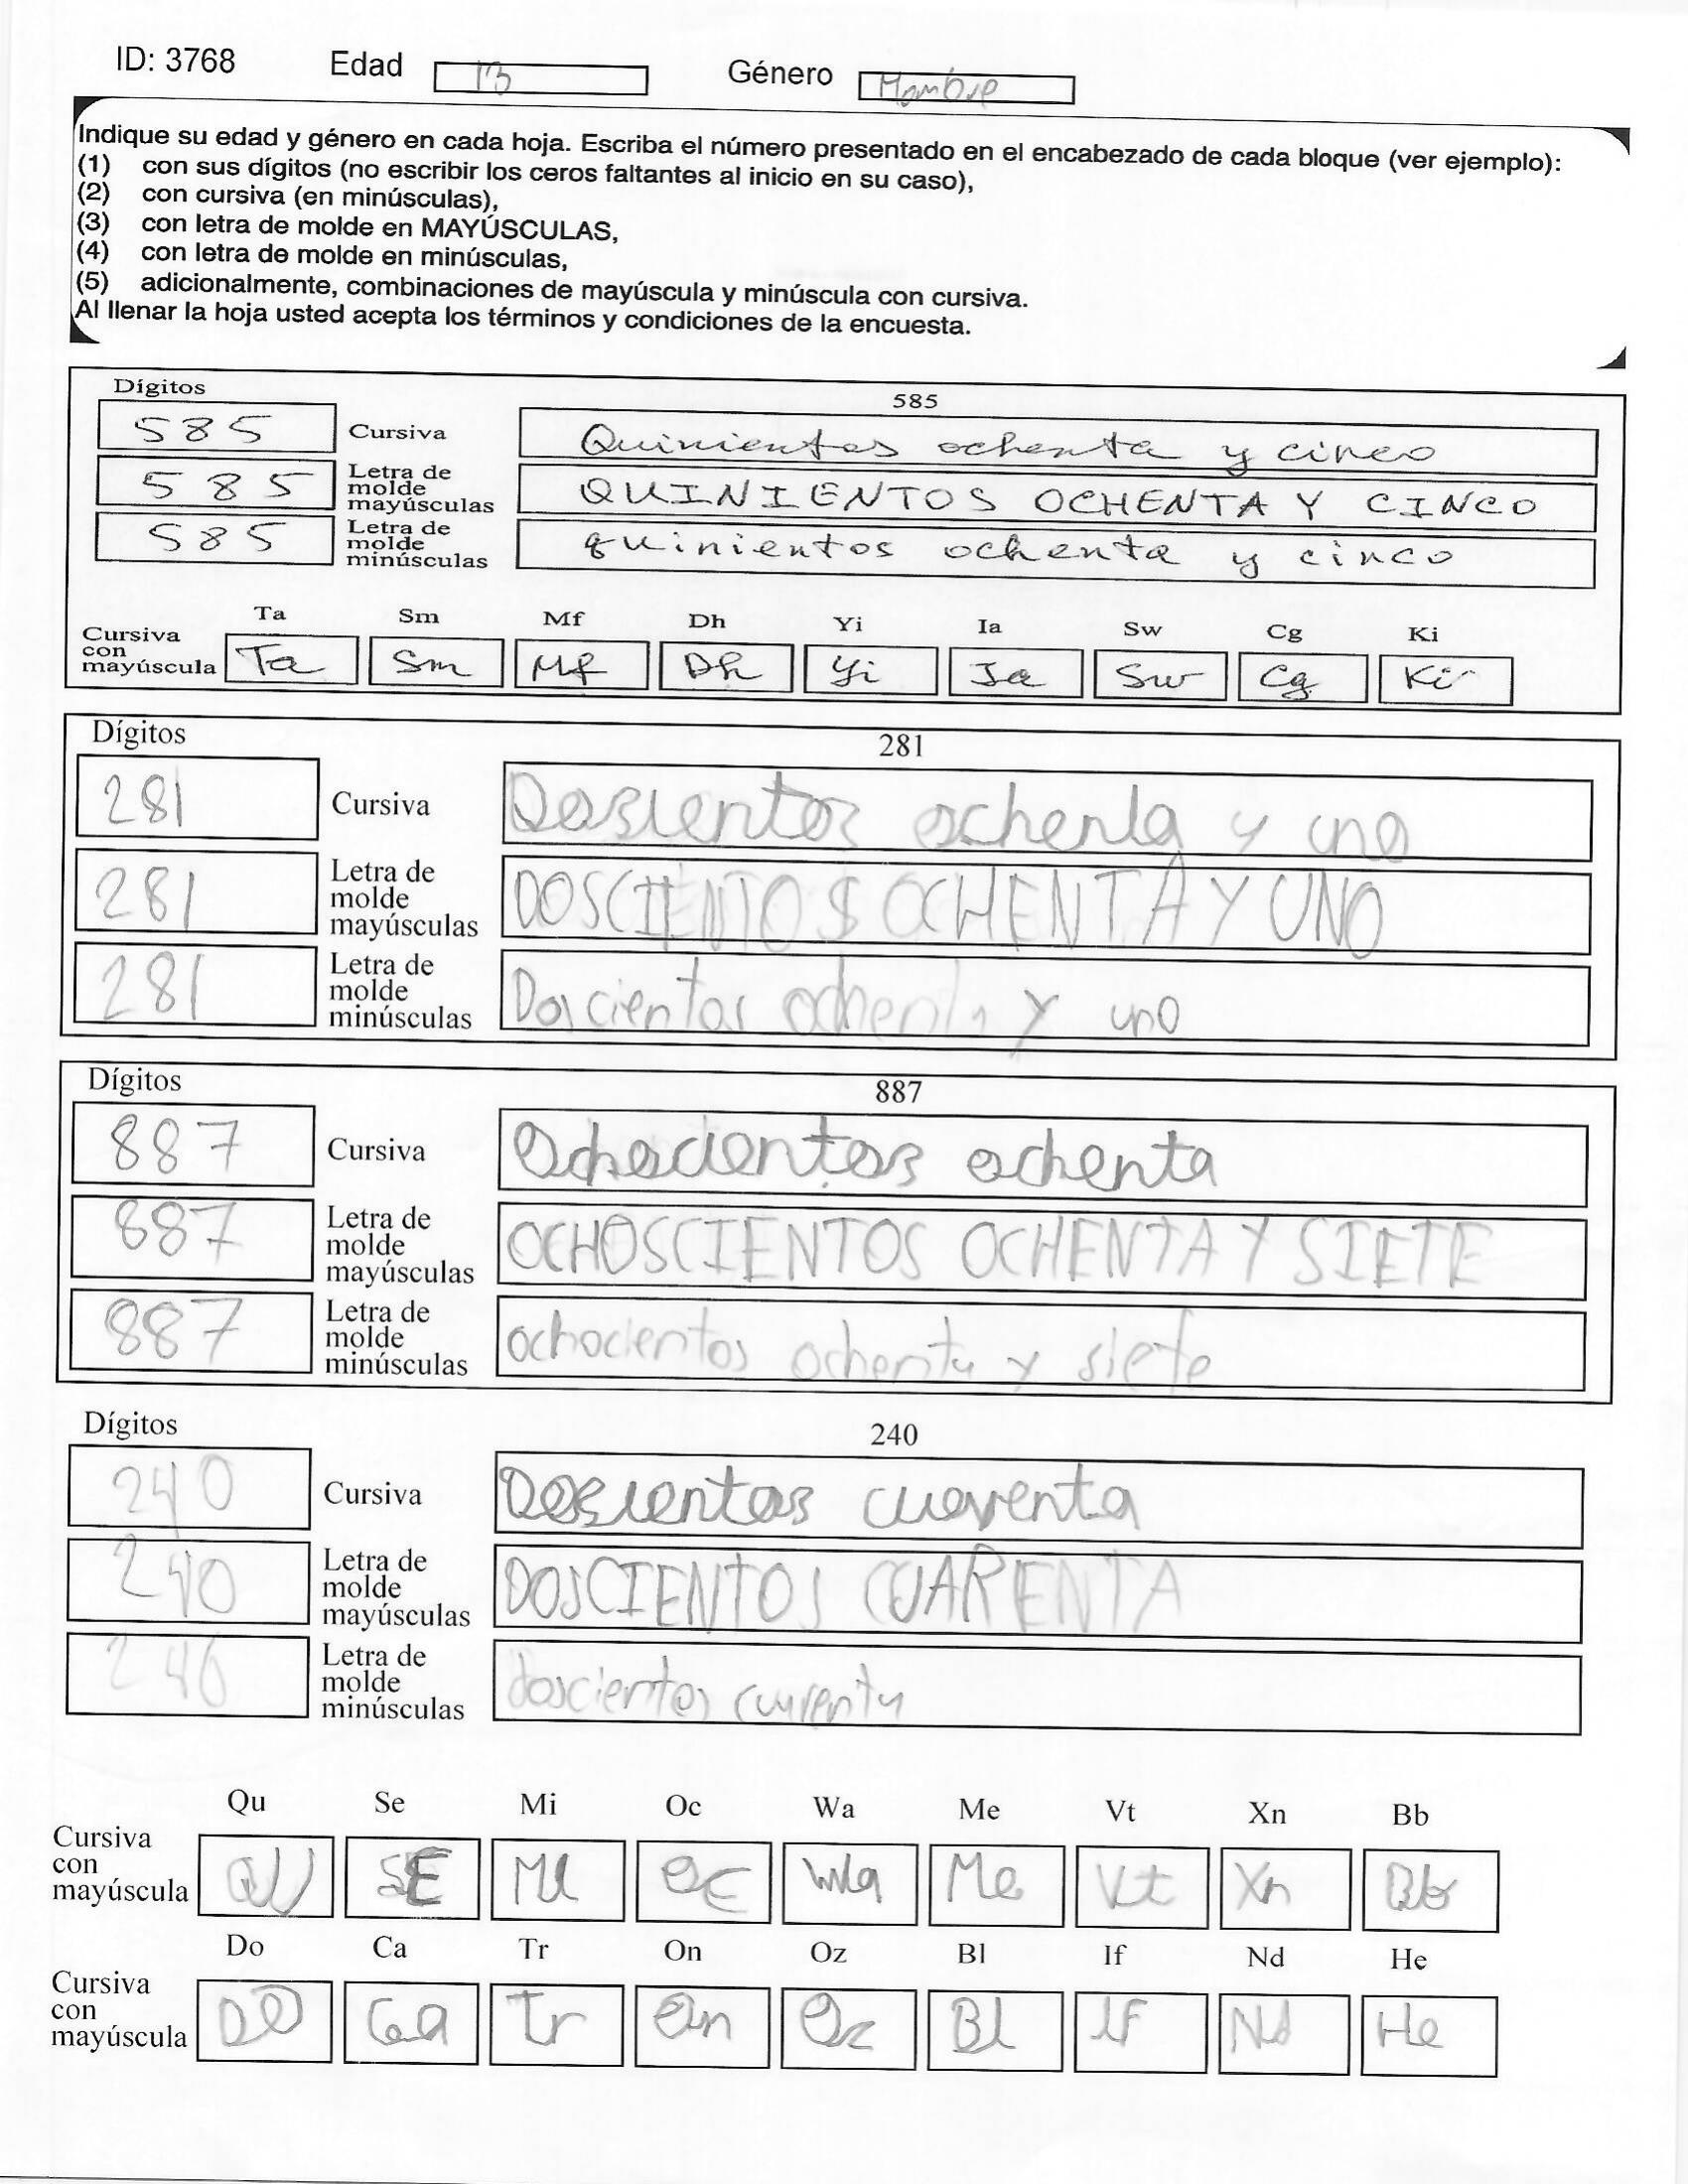 ID: 3768 Edad 13 Género Hombre
Indique su edad y género en cada hoja. Escriba el número presentado en el encabezado de cada bloque (ver ejemplo):
(1) con sus dígitos (no escribir los ceros faltantes al inicio en su caso),
(2) con cursiva (en minúsculas),
(3) con letra de molde en MAYÚSCULAS,
(4) con letra de molde en minúsculas,
(5) adicionalmente, combinaciones de mayúscula y minúscula con cursiva.
Al llenar la hoja usted acepta los términos y condiciones de la encuesta.
Dígitos 585
585 Cursiva Quinientos ochenta y cinco
585 Letra de molde mayúsculas QUINIENTOS OCHENTA Y CINCO
585 Letra de molde minúsculas quinientos ochenta y cinco
Ta Sm Mf Dh Yi Ia Sw Cg Ki
Cursiva con mayúscula Ta Sm Mf Dh Yi Ia Sw Cg Ki
Dígitos 281
281 Cursiva Dosientos ochenta y uno
281 Letra de molde mayúsculas DOSCIENTOS OCHENTA Y UNO
281 Letra de molde minúsculas Doscientos ochenta y uno
Dígitos 887
887 Cursiva Ochocientos ochenta
887 Letra de molde mayúsculas OCHOSCIENTOS OCHENTA Y SIETE
887 Letra de molde minúsculas ochocientos ochenta y siete
Dígitos 240
240 Cursiva Dosientos cuarenta
240 Letra de molde mayúsculas DOSCIENTOS CUARENTA
240 Letra de molde minúsculas doscientos cuarenta
Qu Se Mi Oc Wa Me Vt Xn Bb
Cursiva con mayúscula QU SE Mi Oc Wa Me Vt Xn Bb
Do Ca Tr On Oz Bl If Nd He
Cursiva con mayúscula DO Ca Tr On Oz Bl If Nd He